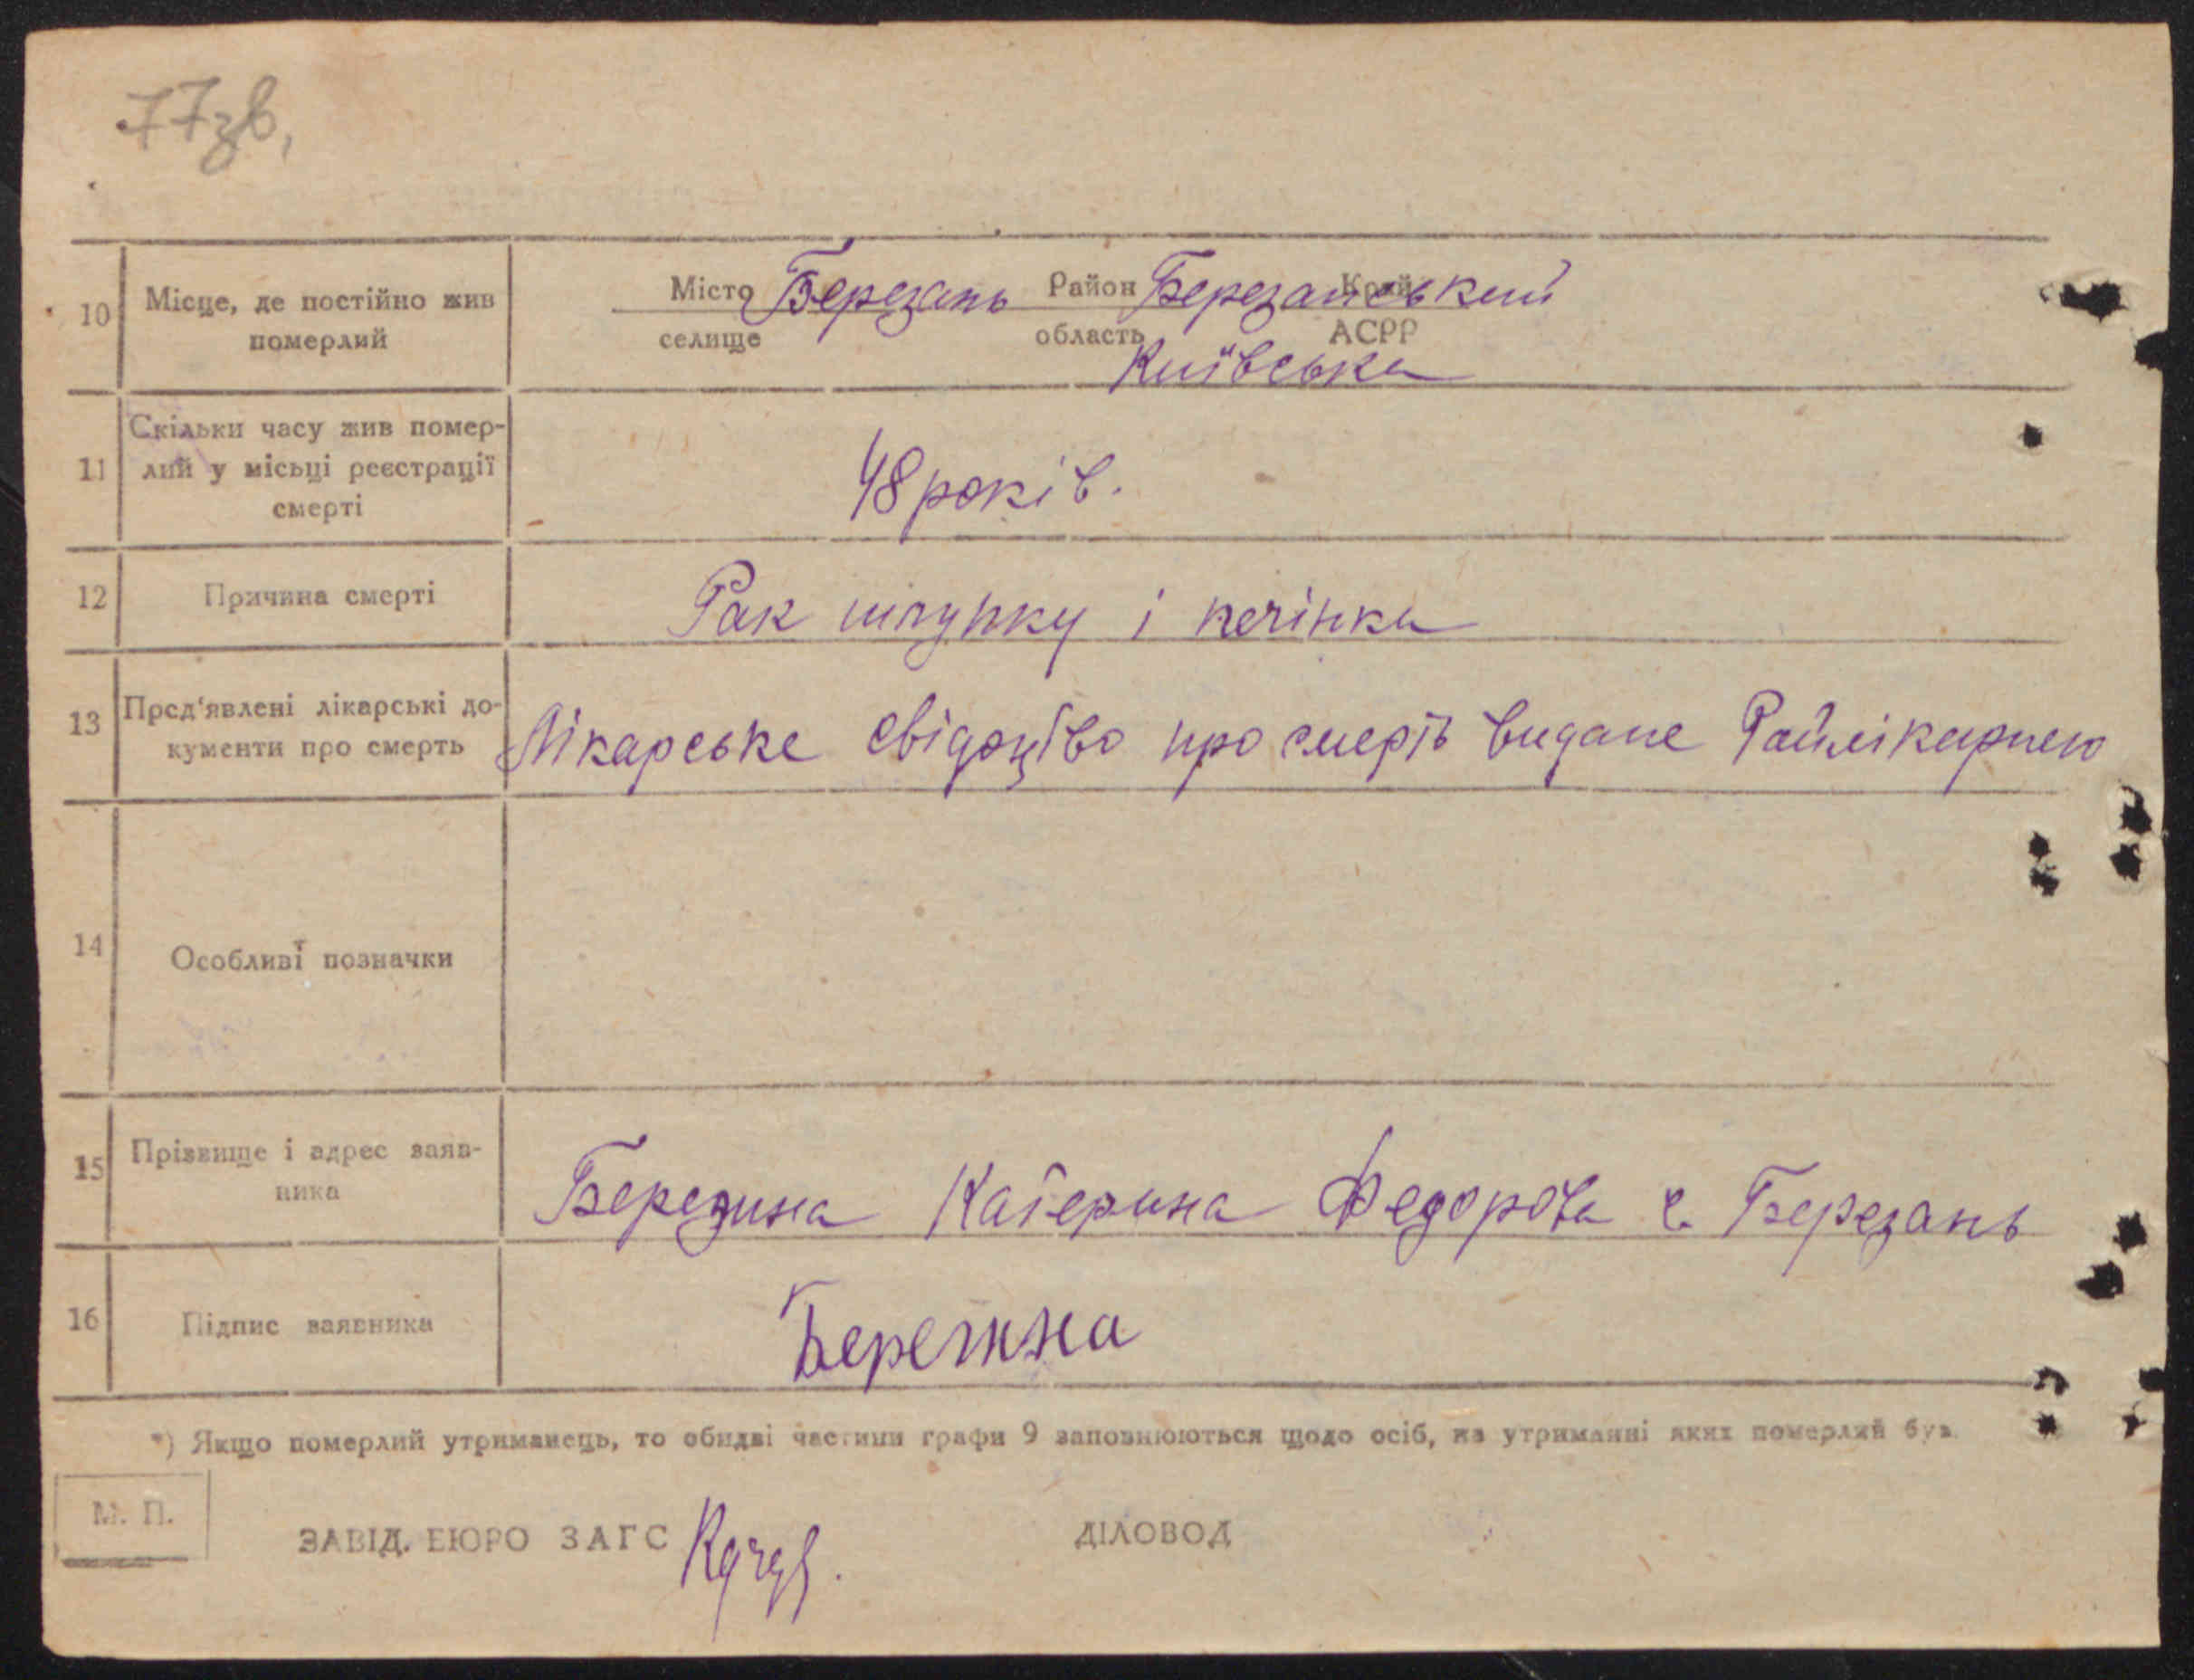 77зв,
10 Місце, де постійно жив померлий
Місто Березань Район Березанський Край
селище область АСРР
Київська
11 Скільки часу жив помер-
лий у місьці реєстрації
смерті
48 років.
12 Причина смерті
Рак шлунку і печінка
13 Пред'явлені лікарські до-
кументи про смерть
Лікарське свідоцтво про смерть видане Райлікарнею
14 Особливі позначки
15 Прізвище і адрес заяв-
ника
Катерина Федорова с. Березань
16 Підпис заявника
*) Якщо померлий утриманець, то обидві частини графи 9 заповнюються щодо осіб, на утриманні яких померлий був.
М. П.
ЗАВІД. БЮРО ЗАГС
ДІЛОВОД